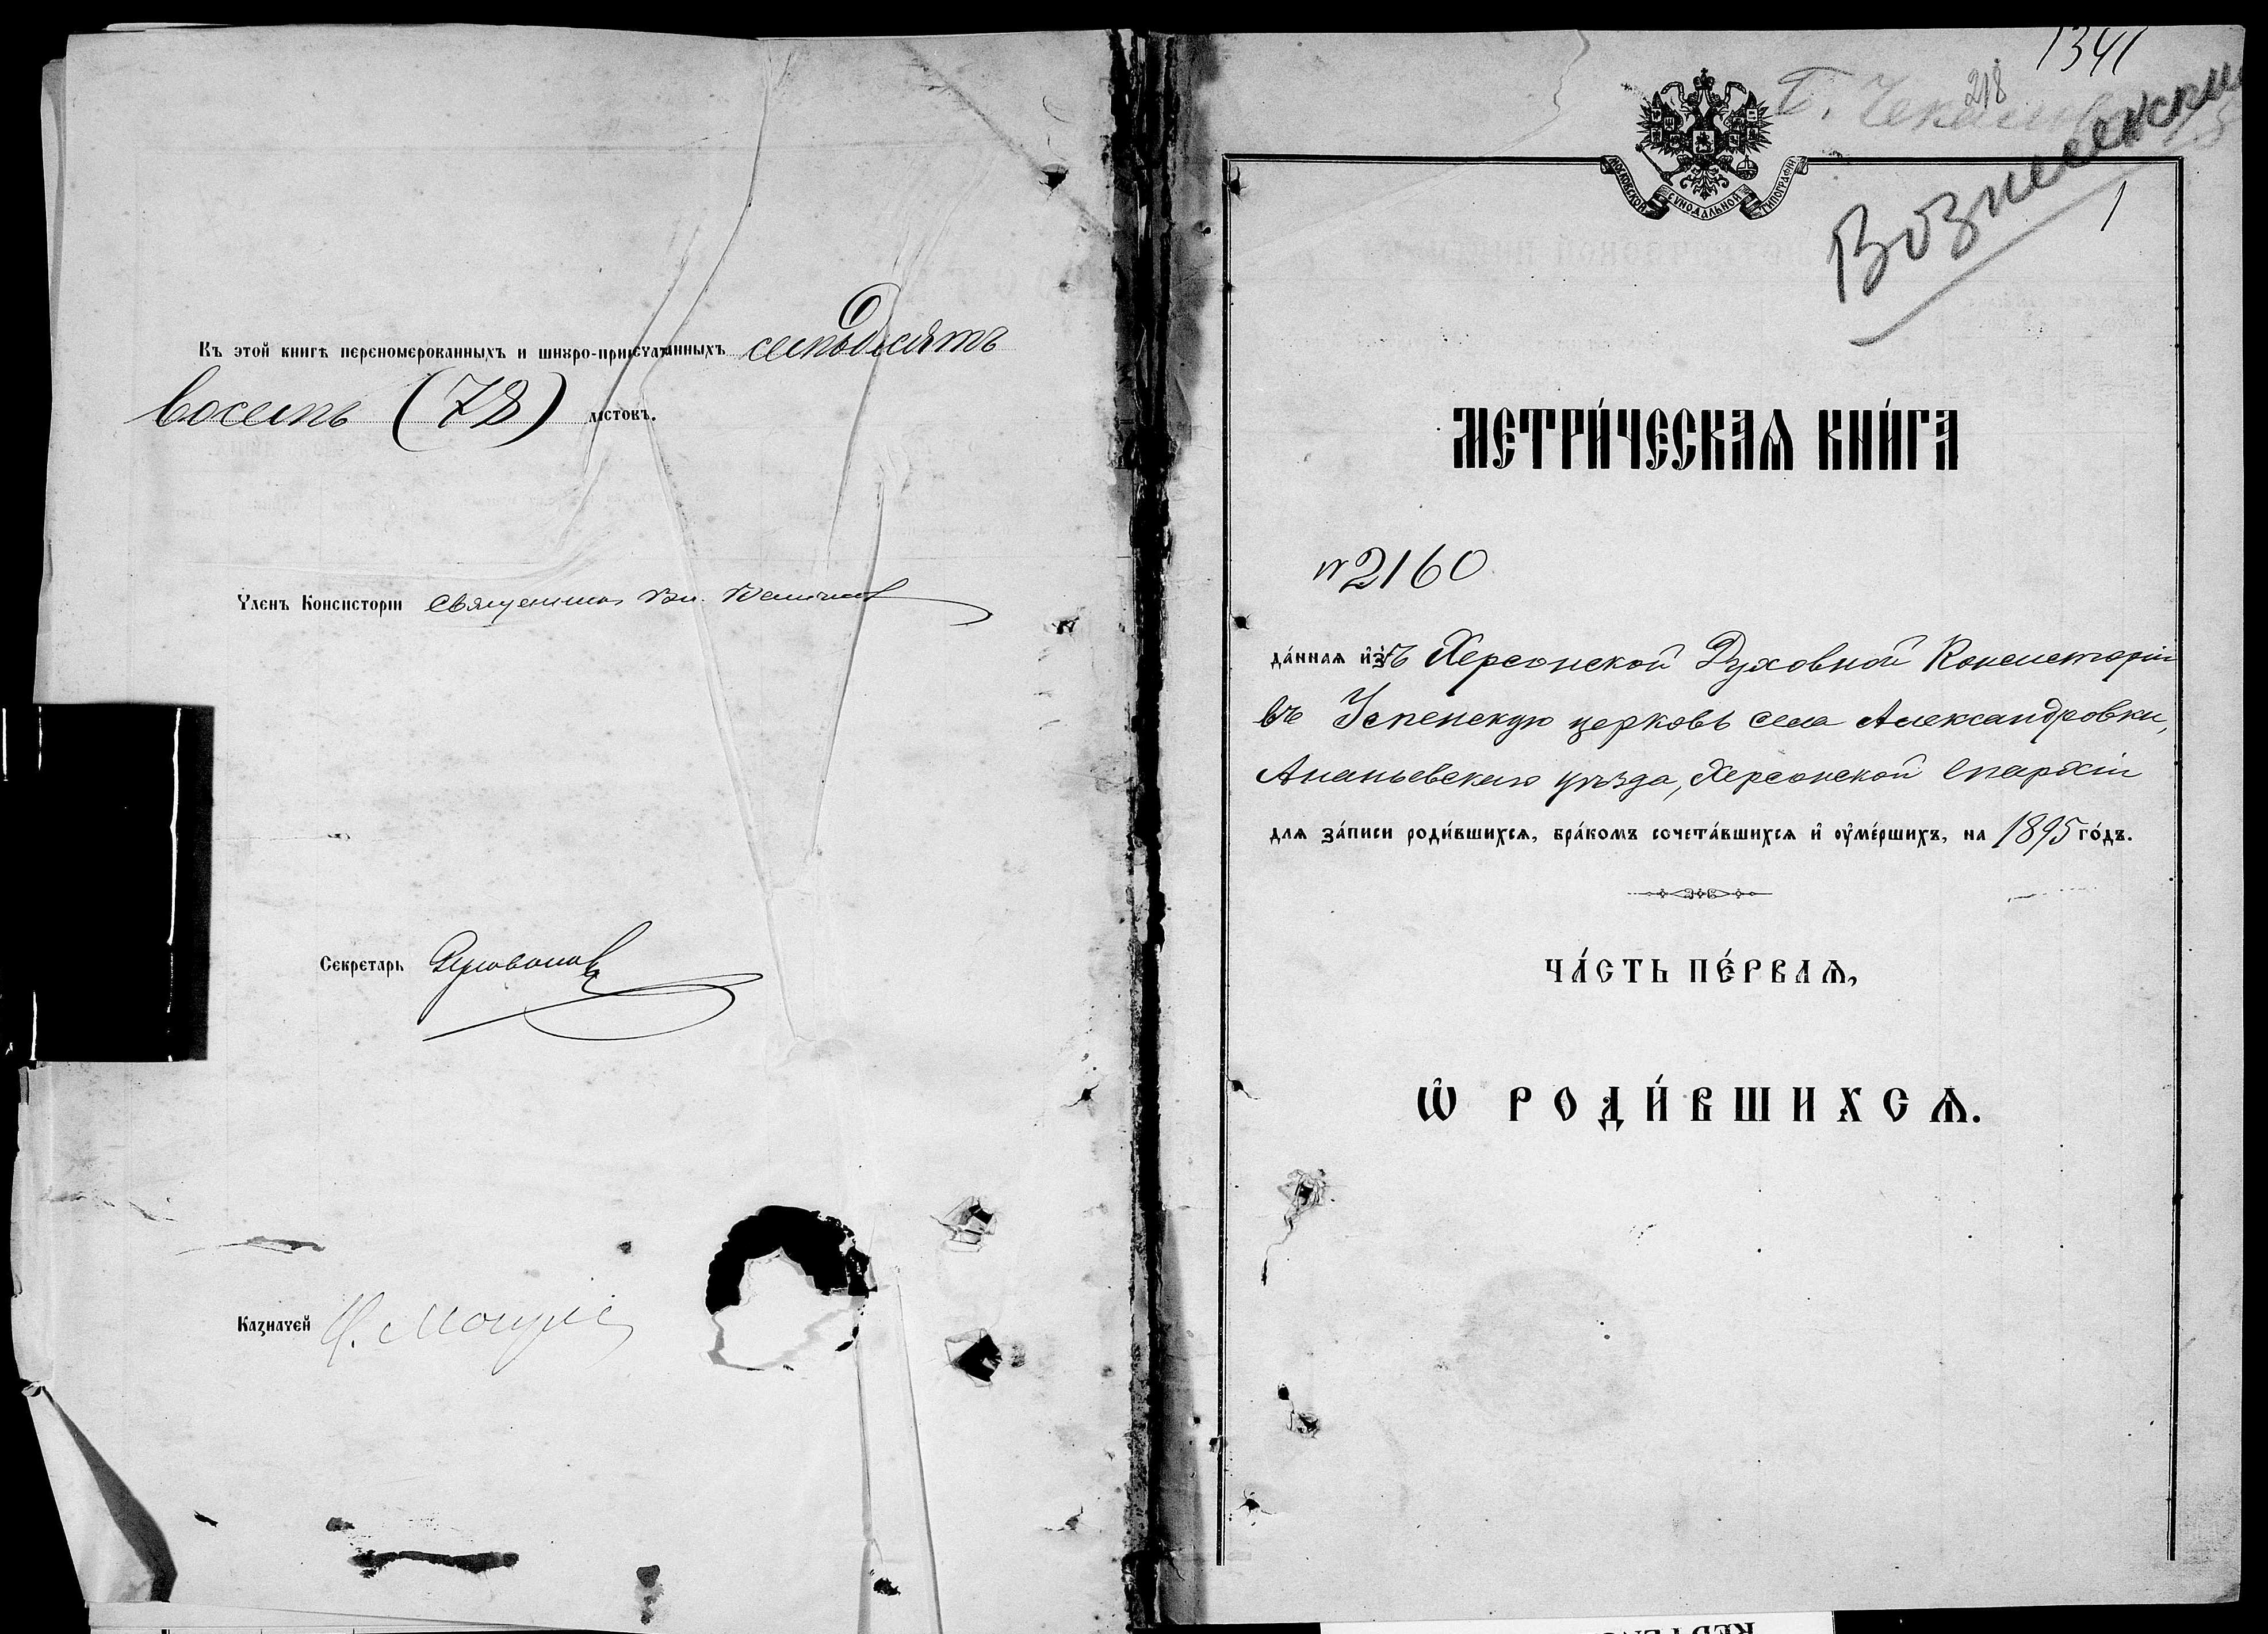 Къ этой книгѣ перемѣнованныхъ и шнуро-припечатанныхъ семьдесятъ
восемь (78) листовъ.
Членъ Консисторіи Священникъ Вл.
Секретарь
Казначей
1341
218
Вознесенский
1
МОСКОВСКОЙ СѴНОДАЛЬНОЙ ТИПОГРАФІИ
МЕТРИ́ЧЕСКАѦ КНИ́ГА
№ 2160
да́нная и҆зъ Херсонской Духовной Консисторіи
въ Успенскую церковь села Александровки,
Ананьевскаго уѣзда, Херсонской епархіи
для за́писи роди́вшихся, бра́комъ сочета́вшихся и҆ оу҆ме́ршихъ, на 1895 го́дъ.
ЧА́СТЬ ПЕ́РВАѦ,
Ѡ҆ РОДИ́ВШИХСѦ.